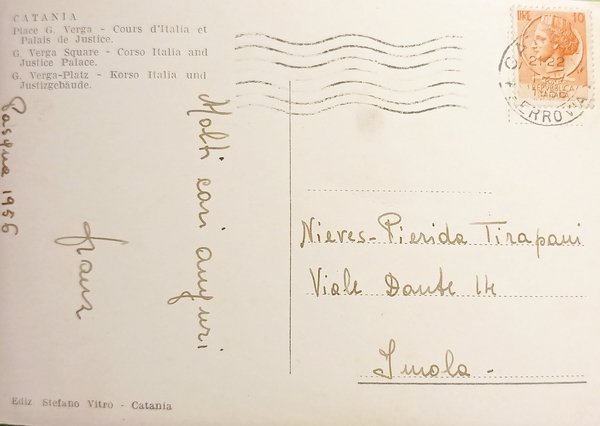 CATANIA
Place G. Verga - Cours d'Italia et
Palais de Justice.
G. Verga Square - Corso Italia and
Justice Palace.
G. Verga-Platz - Korso Italia und
Justizgebäude.
LIRE 10
21-22
FERROVIA
REPUBBLICA
Pasqua 1956
Molti cari auguri
Franz
Nieves-Pierida Tirapani
Viale Dante 14
Imola -
Ediz Stefano Vitrò - Catania